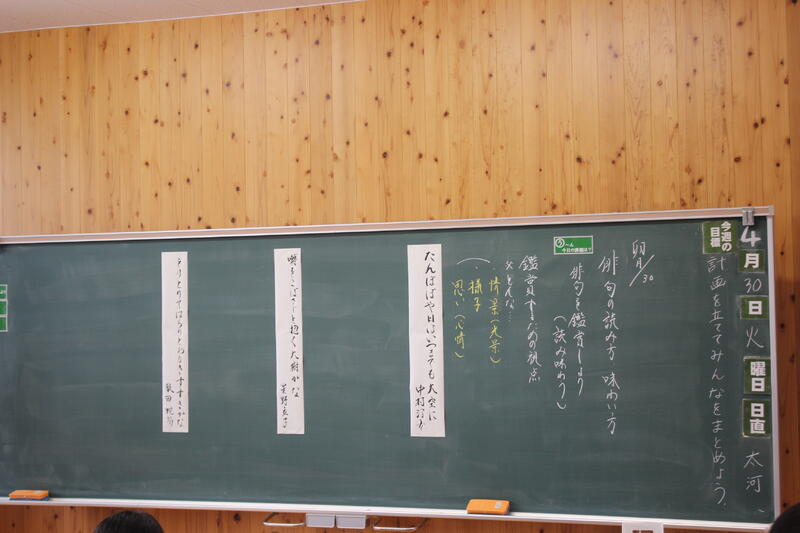 4月30日火曜日 日直 太河、
今週の目標 計画を立ててみんなをまとめよう。
俳句の読み方 味わい方
今日の課題は?
俳句を鑑賞しよう
(読み味わう)
鑑賞するための視点
どんな…
・情景(光景)
・様子
・思い(心情)
たんぽぽや日はいつまでも大空に 中村汀女
囀をこぼさじと抱く大樹かな 星野立子
をりとりてはらりとおもきすすきかな 飯田蛇笏